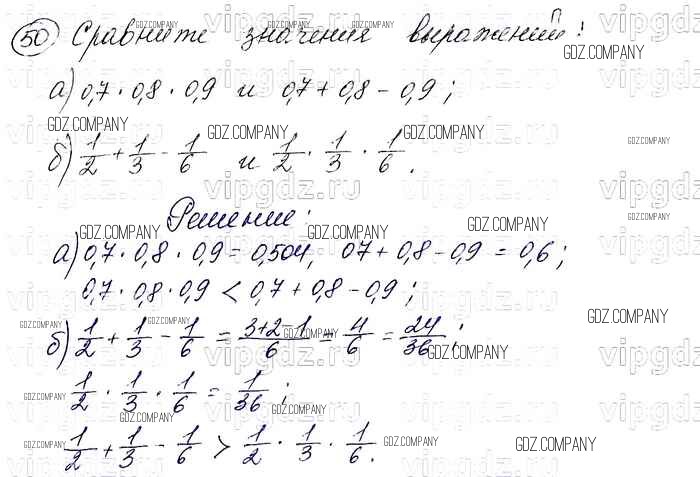 50 Сравните значения выражений:
а) 0,7 · 0,8 · 0,9 и 0,7 + 0,8 - 0,9;
б) 1/2 + 1/3 - 1/6 и 1/2 · 1/3 · 1/6.
Решение:
а) 0,7 · 0,8 · 0,9 = 0,504, 07 + 0,8 - 0,9 = 0,6;
0,7 · 0,8 · 0,9 < 0,7 + 0,8 - 0,9;
б) 1/2 + 1/3 - 1/6 = 3+2-1/6 = 4/6 = 24/36;
1/2 · 1/3 · 1/6 = 1/36;
1/2 + 1/3 - 1/6 > 1/2 · 1/3 · 1/6.
GDZ.COMPANY
vipgdz.ru